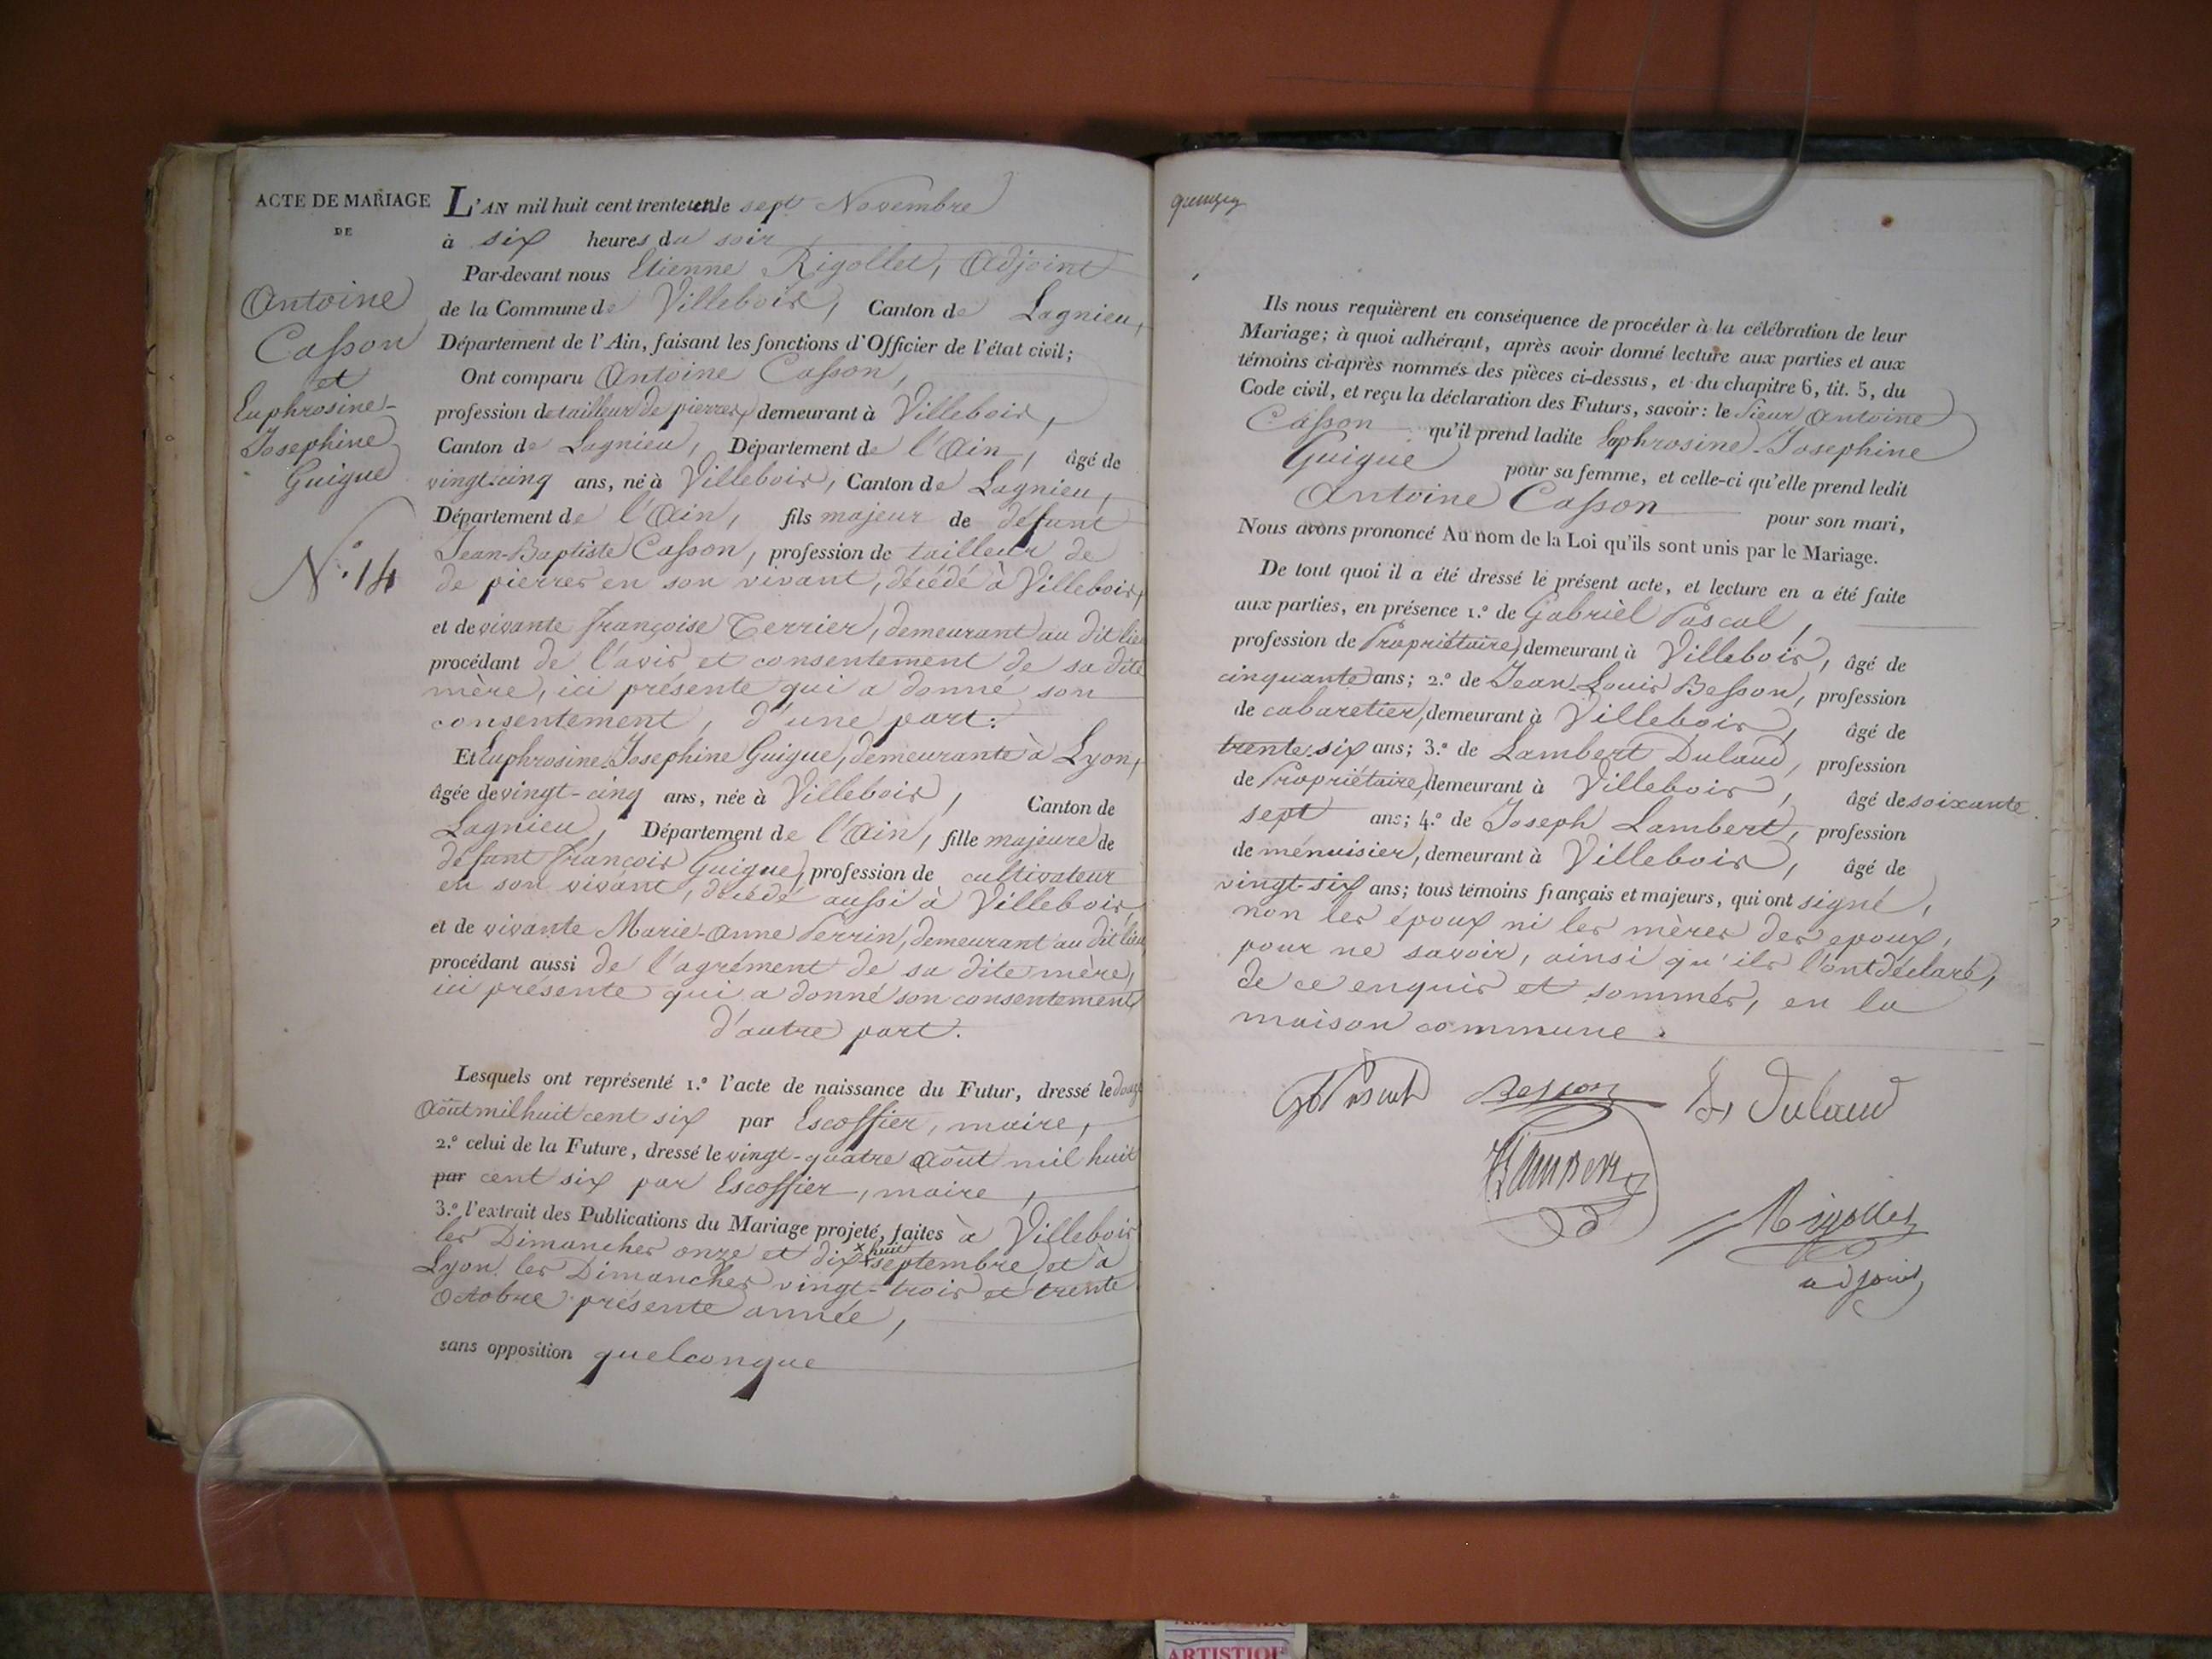 ACTE DE MARIAGE
DE
Antoine
Casson
et
Euphrosine-
Josephine
Guigue
N.° 14
L'AN mil huit cent trente un le sept Novembre
à six heures du soir
Par-devant nous Etienne Rigollet, Adjoint
de la Commune de Villebois, Canton de Lagnieu,
Département de l'Ain, faisant les fonctions d'Officier de l'état civil;
Ont comparu Antoine Casson,
profession de tailleur de pierres, demeurant à Villebois,
Canton de Lagnieu, Département de l'Ain, âgé de
vingt-cinq ans, né à Villebois, Canton de Lagnieu,
Département de l'Ain, fils majeur de défunt
Jean-Baptiste Casson, profession de tailleur de
de pierres en son vivant, décédé à Villebois,
et de vivante françoise Terrier, demeurant au dit lieu
procédant de l'avis et consentement de sa dite
mère, ici présente qui a donné son
consentement, d'une part.
Et Euphrosine-Josephine Guigue, demeurante à Lyon,
âgée de vingt-cinq ans, née à Villebois, Canton de
Lagnieu, Département de l'Ain, fille majeure de
défunt françois Guigue, profession de cultivateur
en son vivant, décédé aussi à Villebois,
et de vivante Marie-Anne Perrin, demeurant au dit lieu
procédant aussi de l'agrément de sa dite mère,
ici présente qui a donné son consentement
d'autre part.
Lesquels ont représenté 1.° l'acte de naissance du Futur, dressé le douze
Août mil huit cent six par Escoffier, maire,
2.° celui de la Future, dressé le vingt-quatre Août mil huit
par cent six par Escoffier, maire,
3.° l'extrait des Publications du Mariage projeté, faites à Villebois
les Dimanches onze et dix huit septembre, et à
Lyon les Dimanches vingt-trois et trente
Octobre présente année,
sans opposition quelconque
Ils nous requièrent en conséquence de procéder à la célébration de leur
Mariage; à quoi adhérant, après avoir donné lecture aux parties et aux
témoins ci-après nommés des pièces ci-dessus, et du chapitre 6, tit. 5, du
Code civil, et reçu la déclaration des Futurs, savoir: le sieur Antoine
Casson qu'il prend ladite Euphrosine-Josephine
Guigue pour sa femme, et celle-ci qu'elle prend ledit
Antoine Casson pour son mari,
Nous avons prononcé Au nom de la Loi qu'ils sont unis par le Mariage.
De tout quoi il a été dressé le présent acte, et lecture en a été faite
aux parties, en présence 1.° de Gabriel Pascal,
profession de Propriétaire, demeurant à Villebois, âgé de
cinquante ans; 2.° de Jean-Louis Besson, profession
de cabaretier, demeurant à Villebois, âgé de
trente-six ans; 3.° de Lambert Dulaud, profession
de Propriétaire, demeurant à Villebois, âgé de soixante
sept ans; 4.° de Joseph Lambert, profession
de ménuisier, demeurant à Villebois, âgé de
vingt-six ans; tous témoins français et majeurs, qui ont signé,
non les epoux ni les mères des epoux,
pour ne savoir, ainsi qu'ils l'ont déclaré,
de ce enquis et sommés, en la
maison commune.
G Pascal Besson L Dulaud
J Lambert
Rigollet
adjoint
ARTISTIQUE